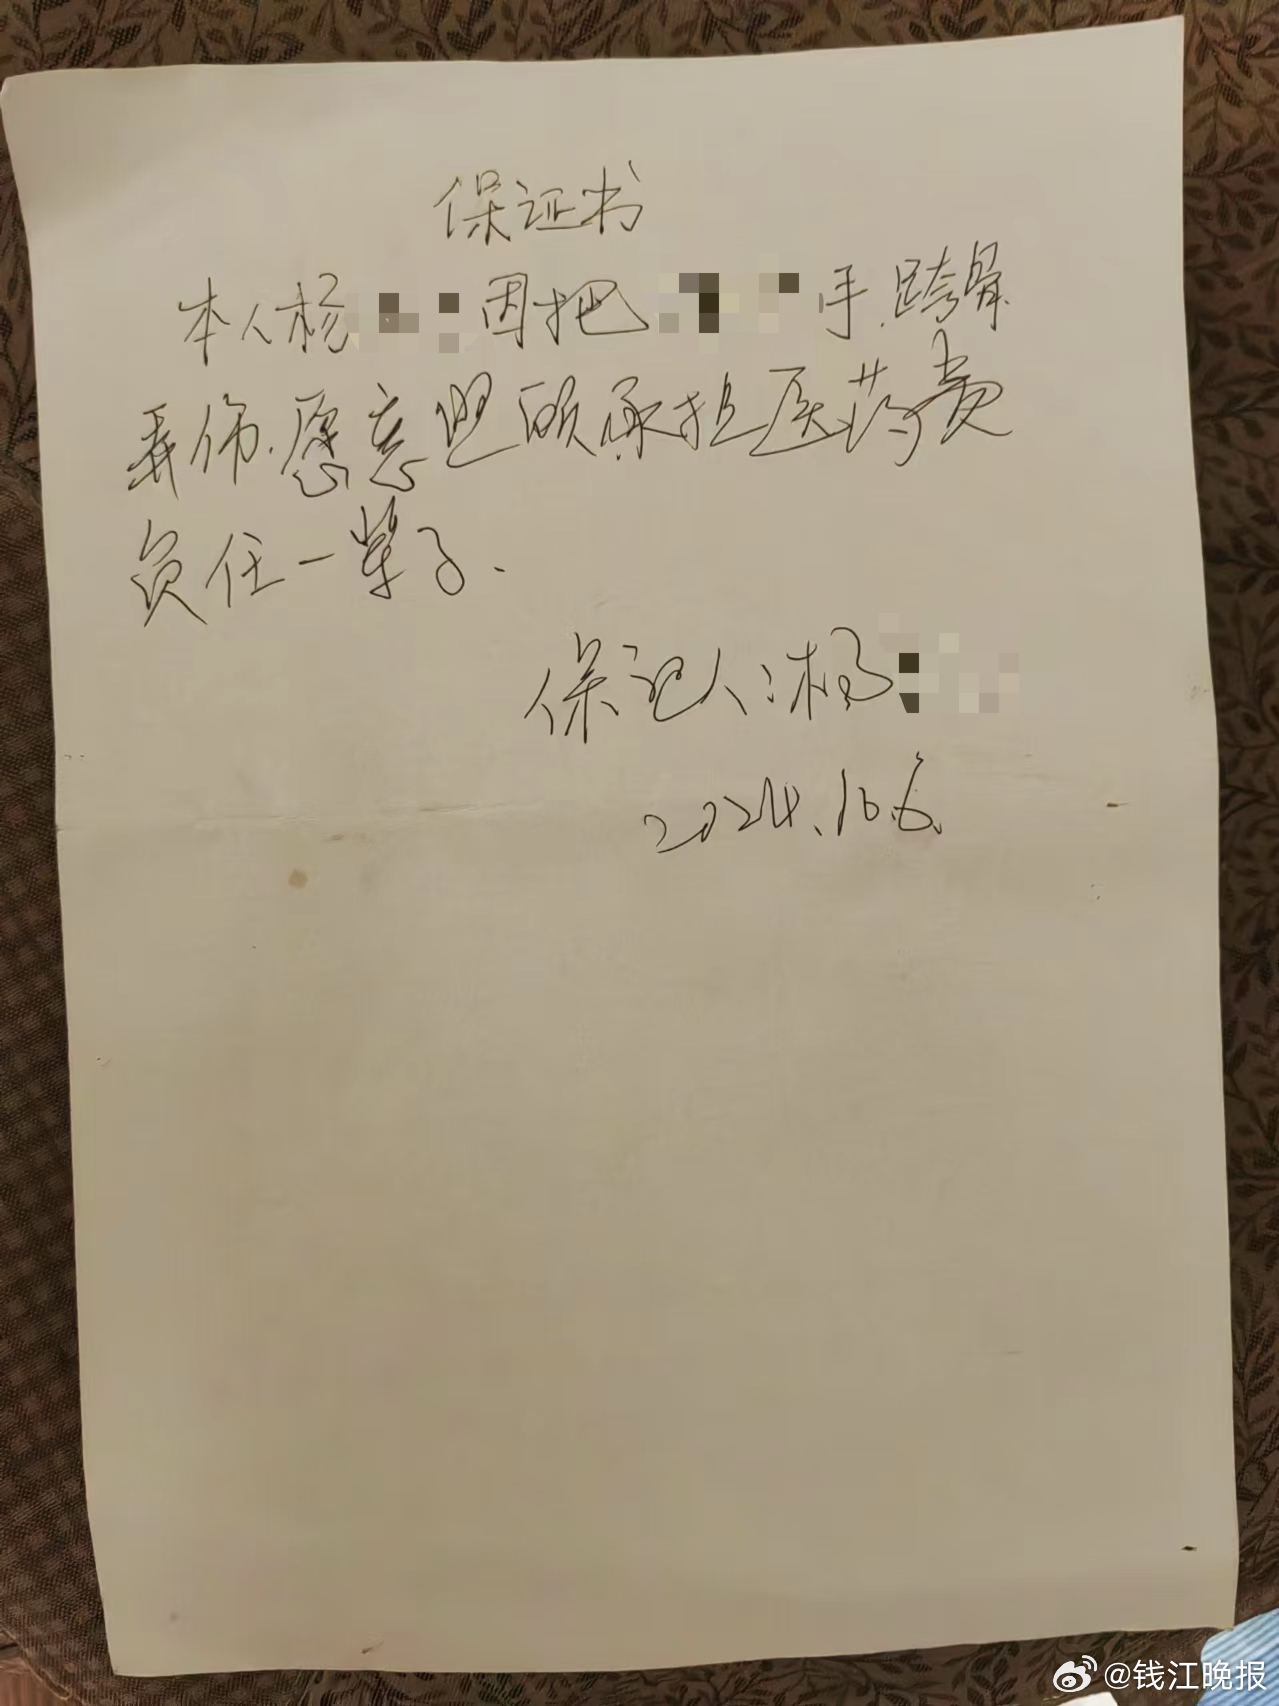 保证书
本人杨 因把 手、跨骨
弄伤.愿意照顾承担医药费
负任一辈子.
保证人:杨
2024.10.6.
@钱江晚报